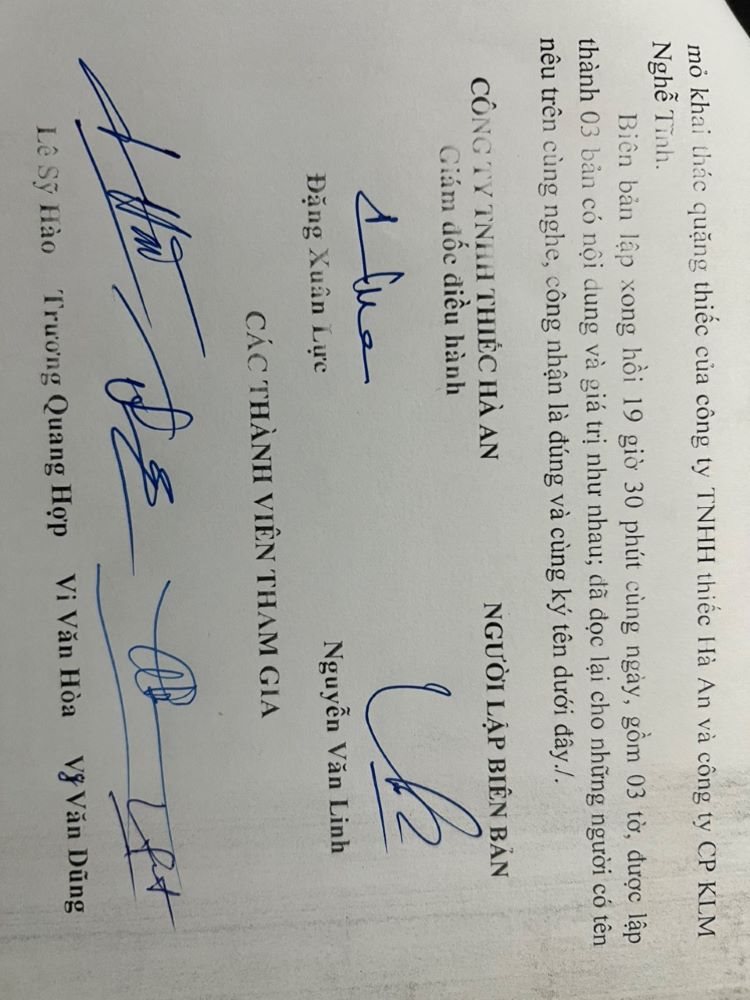 mỏ khai thác quặng thiếc của công ty TNHH thiếc Hà An và công ty CP KLM
Nghễ Tĩnh.
Biên bản lập xong hồi 19 giờ 30 phút cùng ngày, gồm 03 tờ, được lập
thành 03 bản có nội dung và giá trị như nhau; đã đọc lại cho những người có tên
nêu trên cùng nghe, công nhận là đúng và cùng ký tên dưới đây./.
CÔNG TY TNHH THIẾC HÀ AN NGƯỜI LẬP BIÊN BẢN
Giám đốc điều hành
Đặng Xuân Lực Nguyễn Văn Linh
CÁC THÀNH VIÊN THAM GIA
Lê Sỹ Hào Trương Quang Hợp Vi Văn Hòa Văn Dũng